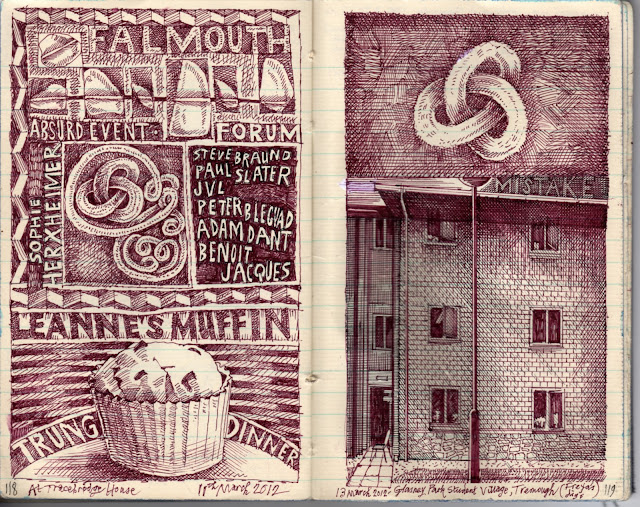 FALMOUTH
ABSURD EVENT: FORUM
SOPHIE
HERXHEIMER
STEVE BRAUND
PAUL SLATER
JVL
PETER BLEGVAD
ADAM DANT
BENOIT
JACQUES
LEANNE'S MUFFIN
TRUNG DINNER
118 At Tracebridge House 11th March 2012
MISTAKE
13 March 2012. Glasney Park Student Village, Tremough (Freya's digs) 119